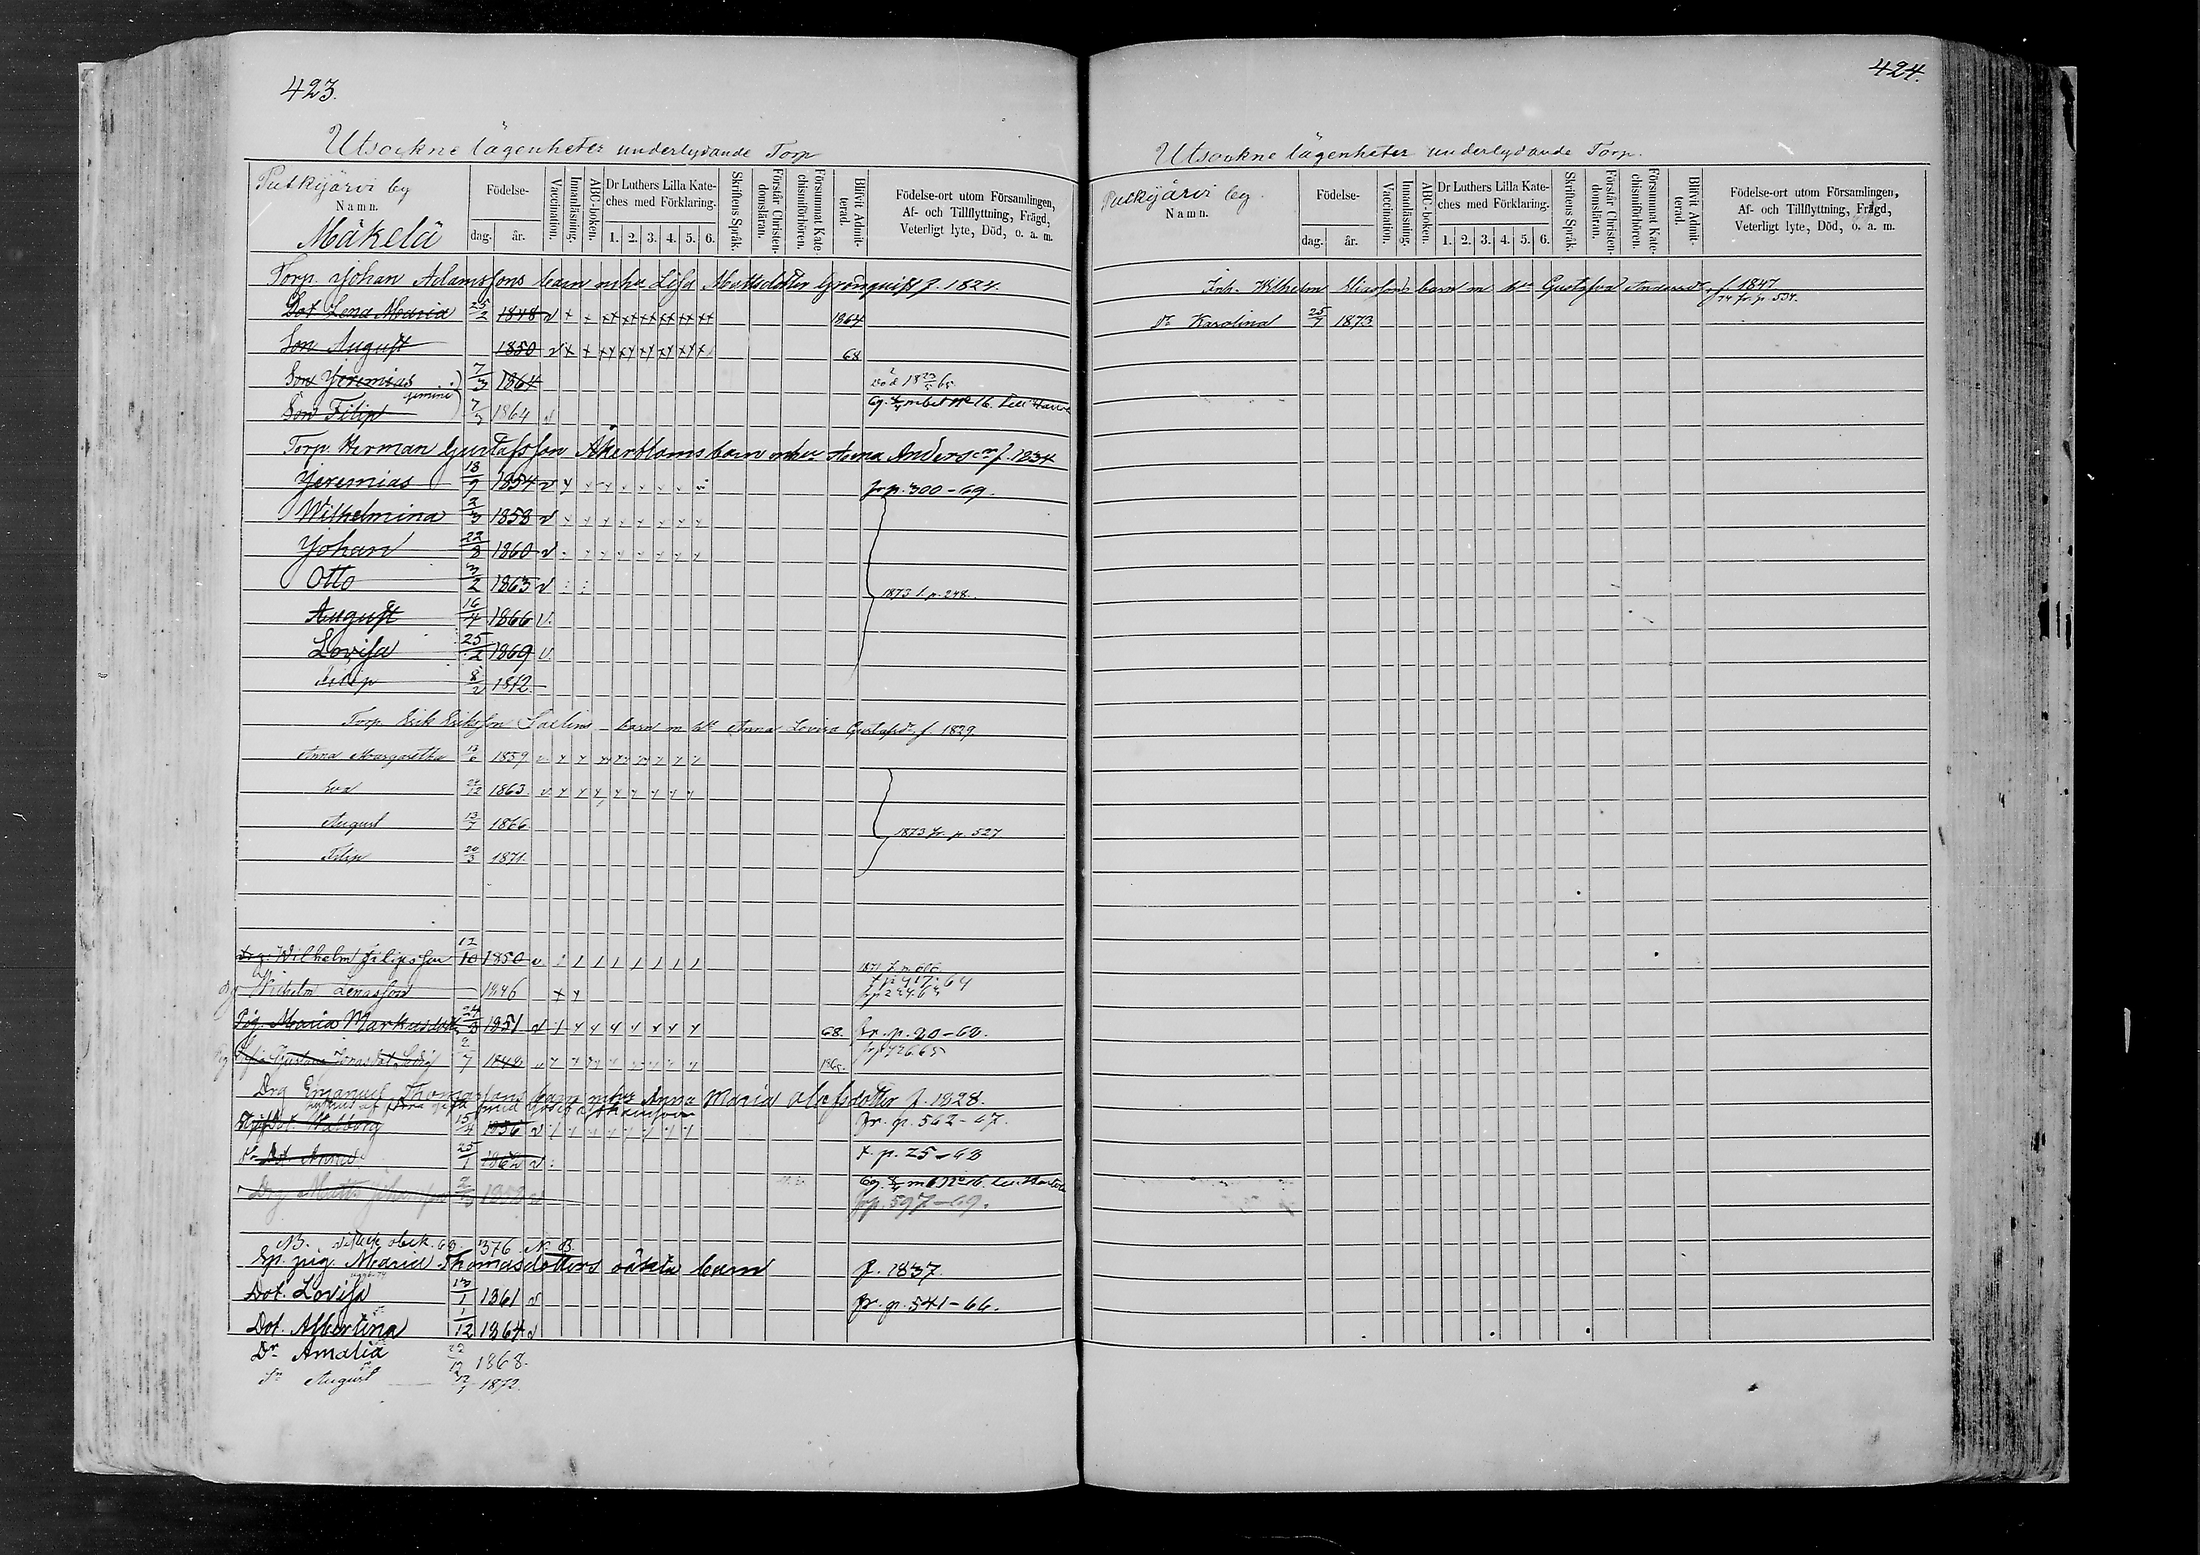 423.
Utsockne lägenheter underlydande Torp
Putkijärvi by
Namn.
Mäkelä
Födelse-
dag. år.
Vaccination.
Innanläsning.
ABC-boken.
Dr Luthers Lilla Kate-
ches med Förklaring.
1. 2. 3. 4. 5. 6.
Skriftens Språk.
Förstår Christen-
domsläran.
Försummat Kate-
chismiförhören.
Blifvit Admit-
terad.
Födelse-ort utom Församlingen,
Af- och Tillflyttning, Frägd,
Veterligt lyte, Död, o. a. m.
Torp. Johan Adamssons barn mhu Lisa Mattsdotter Grönquist f. 1824.
Dot Lena Maria 25/2 1848 v 1864
Son August 1850 v 68
Son Jeremias 7/3 1864 Död 18 23/5 65
gemini
Son Filip 7/3 1864 v
Torp. Herman Gustafsson Åkerbloms barn mhu Anna Anders dr f. 1834
Jeremias 18/9 1854 v fr p. 300-69.
Wilhelmina 2/3 1858 v
Johan 22/8 1860 v
Otto 3/2 1863 v 1873 t. p. 248.
August 16/4 1866 v.
Lovisa 25/2 1869 v.
Filip 8/2 1872.
Torp. Erik Eriksson Saelins barn m hu Anna Lovisa Gustafsdr f. 1829.
Anna Margaretha 13/6 1859 v
Eva 1863 v
August 13/7 1866 1873 fr. p. 527
Filip 20/3 1871.
Drg. Wilhelm Filipsson 12/10 1850 v. 1871 t. p. 606
Drg Wilhelm 1846
Pig. Maria Markusdotter 24/3 1851 v 68. fr. p. 20-68.
Pig Gustava Jonasdot 2/7 1848 v
Drg Emanuel Thomassons barn mhu Anna Maria Olofsdotter f. 1828.
Dot. Walborg 15/4 1856 v fr. p. 562-67.
Dot. Anna 25/1 1862 v t. p. 25-68
Drg Matts Johansson fr p. 597-69.
NB. 376 No 83.
Ep. pig. Maria Thomasdotters oäkta barn f. 1837.
Dot. Lovisa 13/1 1861 v fr. p. 541-66.
Dot. Albertina 1/12 1864 v
Dr Amalia 22/12 1868.
Sn August 1872.
424.
Utsockne lägenheter underlydande Torp.
Putkijärvi by.
Namn.
Födelse-
dag. år.
Vaccination.
Innanläsning.
ABC-boken.
Dr Luthers Lilla Kate-
ches med Förklaring.
1. 2. 3. 4. 5. 6.
Skriftens Språk.
Förstår Christen-
domsläran.
Försummat Kate-
chismiförhören.
Blifvit Admit-
terad.
Födelse-ort utom Församlingen,
Af- och Tillflyttning, Frägd,
Veterligt lyte, Död, o. a. m.
Inh. Wilhelm barn m hu Gustafva Andersdr f. 1847
74 fr. p. 534.
Dr Karolina 25/7 1873